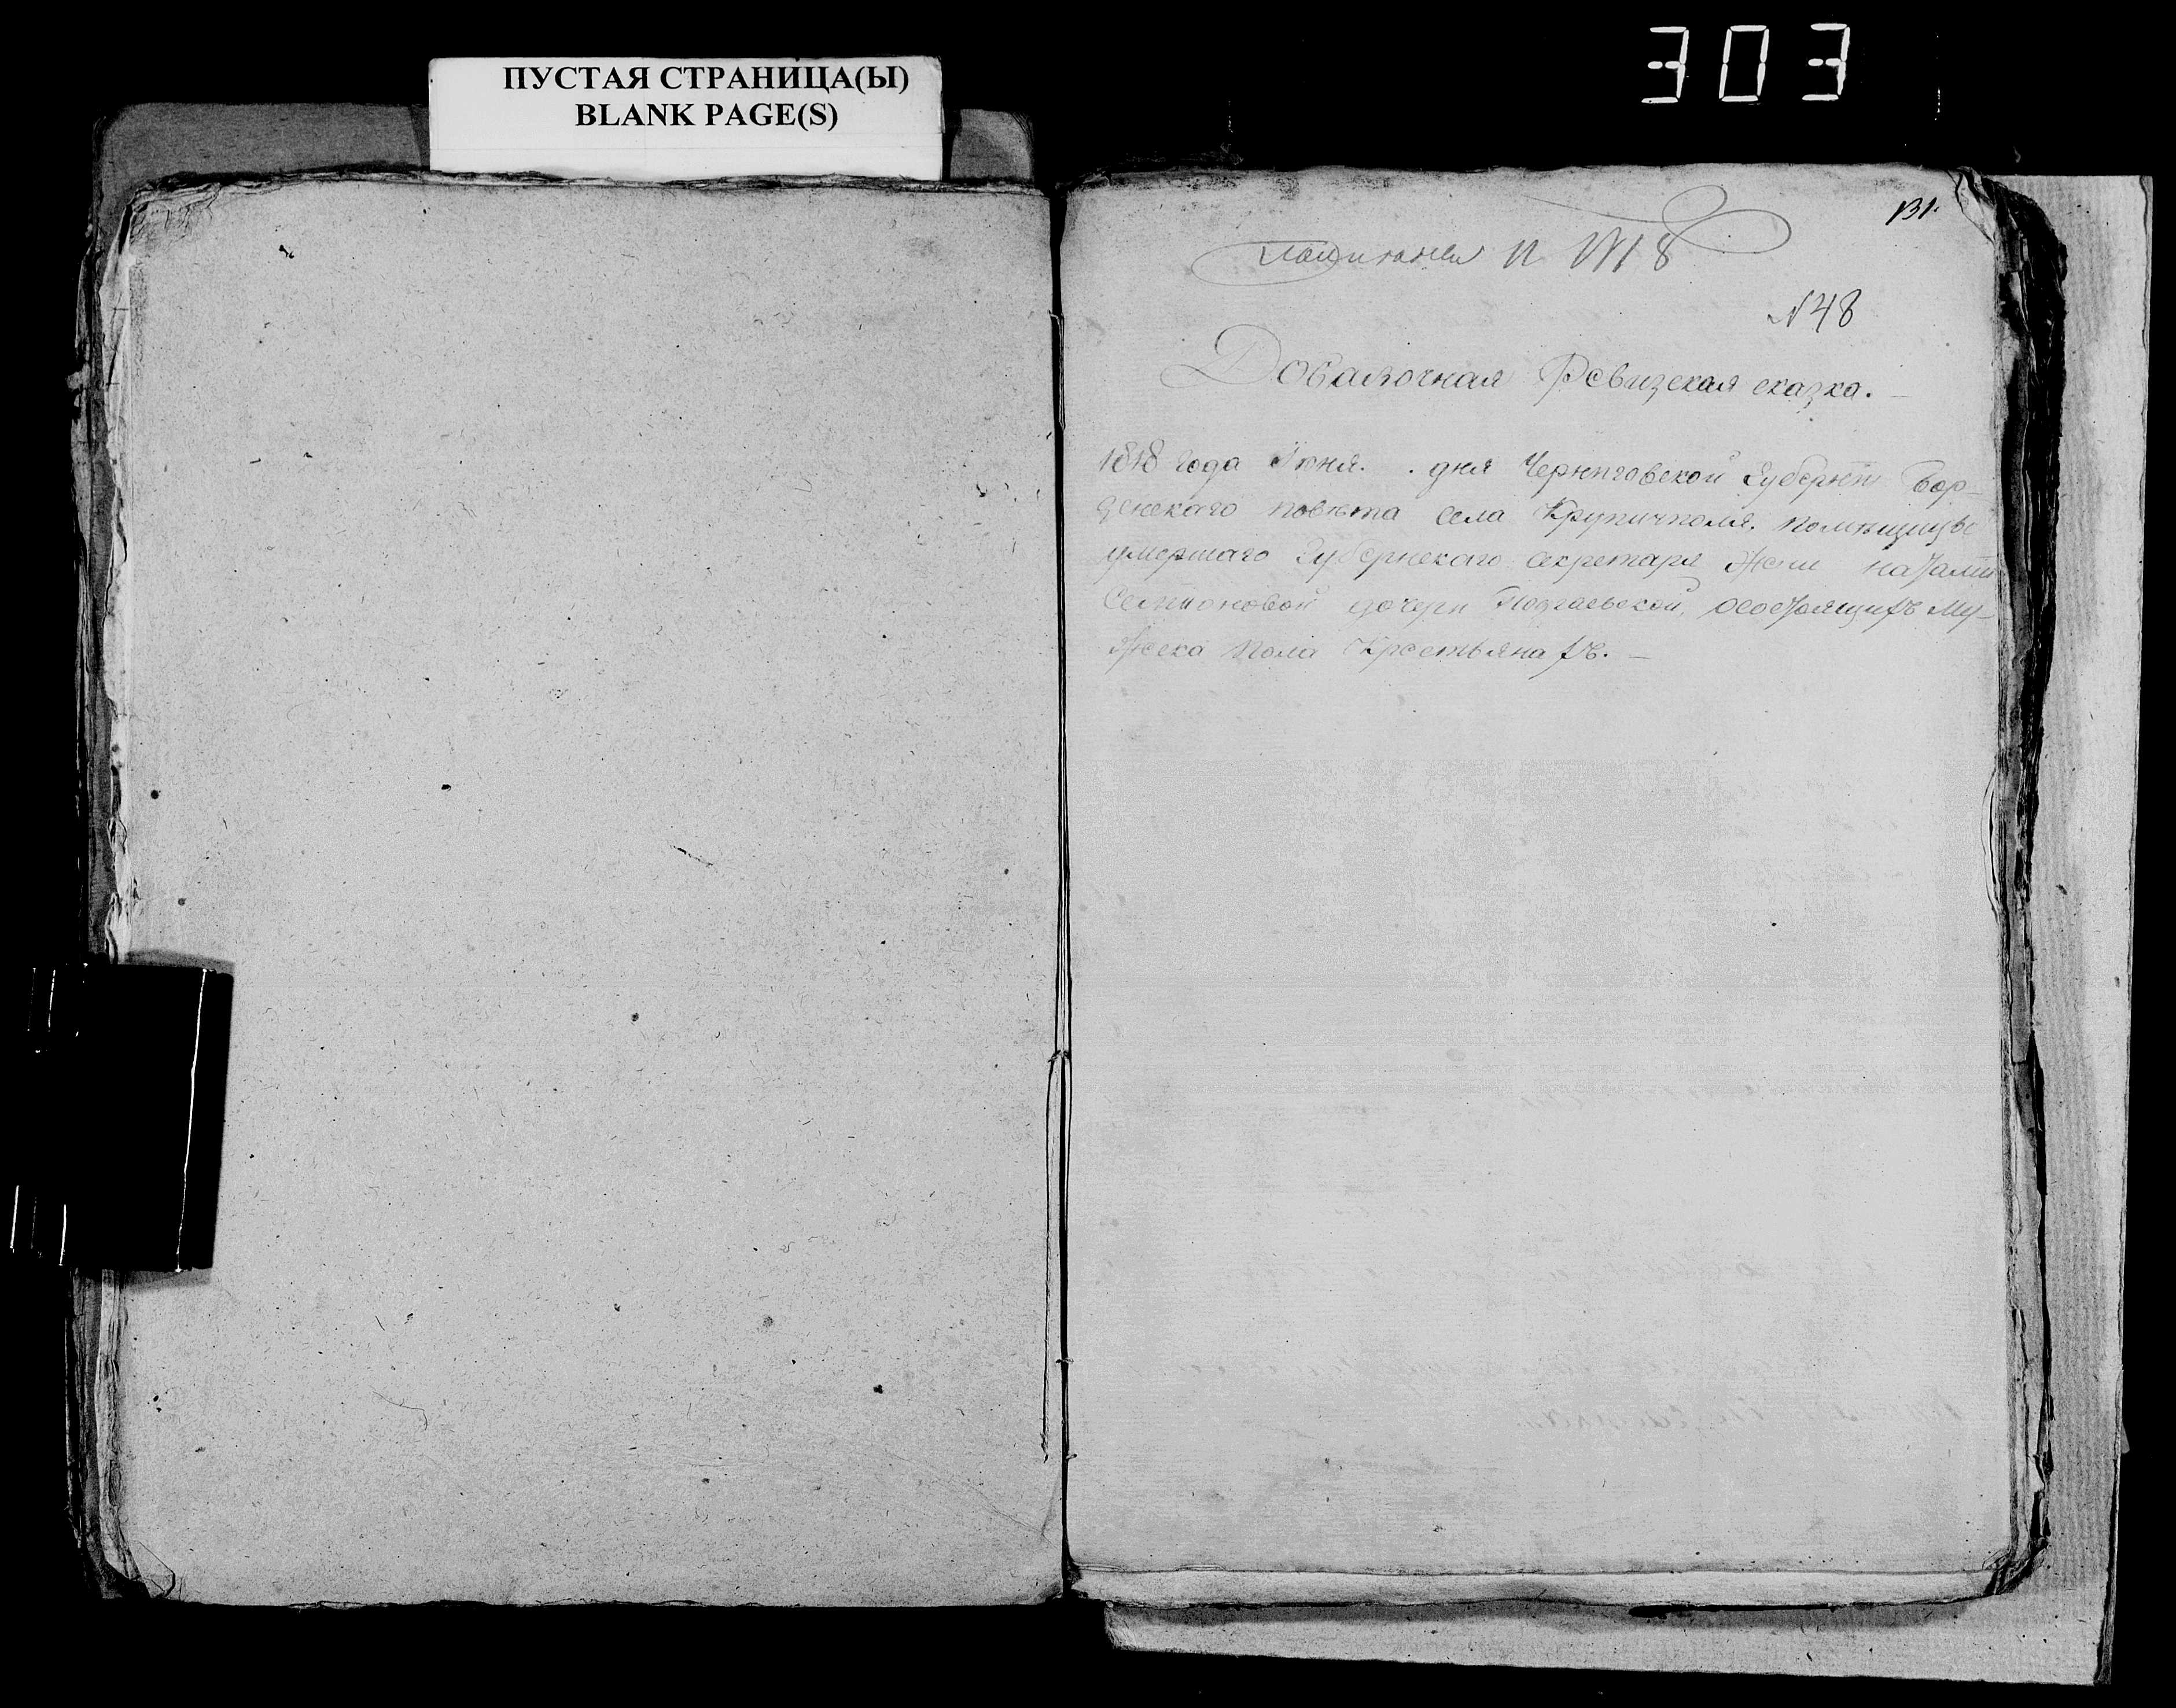 ПУСТАЯ СТРАНИЦА(Ы)
BLANK PAGE(S)
303
131.
№ 48
Добавочная Ревизская сказка.
1818 года Июня. . дня Черниговской Губернии Бор-
зенского повѣта села Крупичполя. помѣщицы
умершаго Губернскаго Секретаря Жены Наталии
Семионовой дочери о состоящихъ Му-
жеска пола Крестьянахъ.